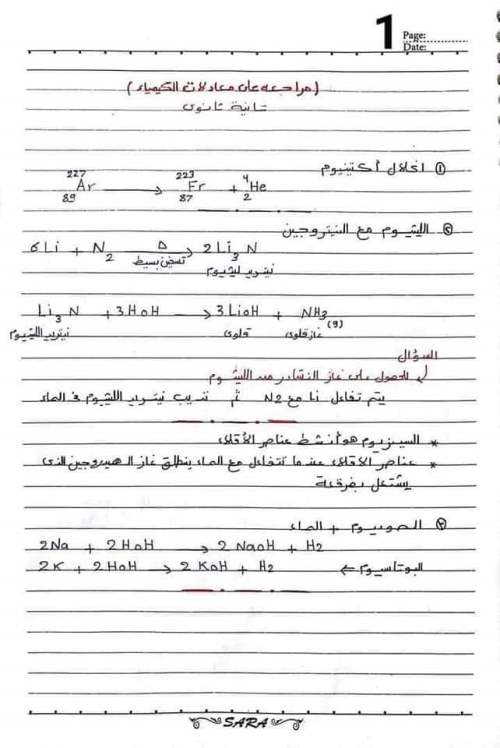 1
Page:
Date:
(مراجعة على معادلات الكيمياء)
ثانية ثانوى
① انحلال أكتينيوم
²²⁷₈₉Ar ⟶ ²²³₈₇Fr + ⁴₂He
② الليثيوم مع النيتروجين
6Li + N₂ —Δ→ 2Li₃N
تسخين بسيط
نيتريد ليثيوم
Li₃N + 3HoH → 3LioH + NH₃(g)
نيتريد الليثيوم قلوى غاز قلوى
السؤال
للحصول على غاز النشادر من الليثيوم
يتم تفاعل Li مع N2 ثم تذيب نيتريد الليثيوم فى الماء
* السيزيوم هو أنشط عناصر الأقلاء
* عناصر الأقلاء عندما تتفاعل مع الماء ينطلق غاز الهيدروجين الذى
يشتعل بفرقعة
③ الصوديوم + الماء
2Na + 2HoH → 2NaoH + H2
2K + 2HoH → 2KoH + H2 ← البوتاسيوم
SARA